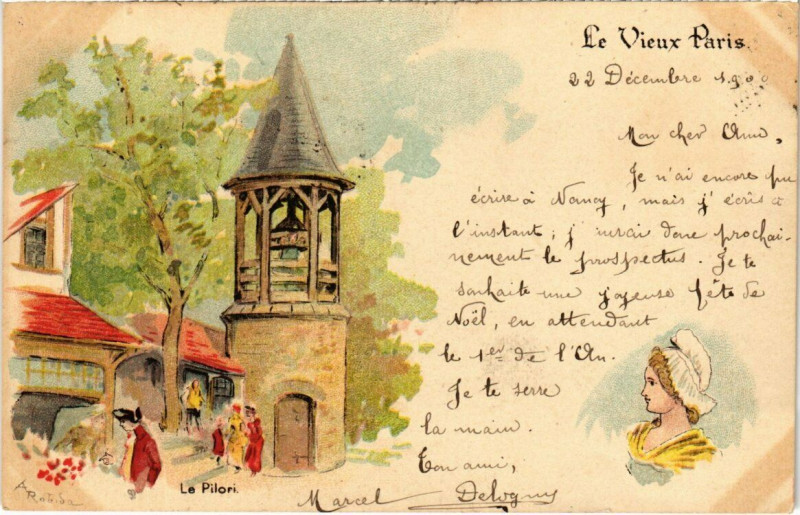 Le Vieux Paris.
22 Décembre 1900
Mon cher Ami,
Je n'ai encore pu
écrire à Nancy, mais j'écris à
l'instant; j'aurai donc prochai-
nement le prospectus. Je te
souhaite une joyeuse fête de
Noël, en attendant
le 1er de l'An.
Je te serre
la main.
Ton ami,
Marcel
Le Pilori.
A Robida